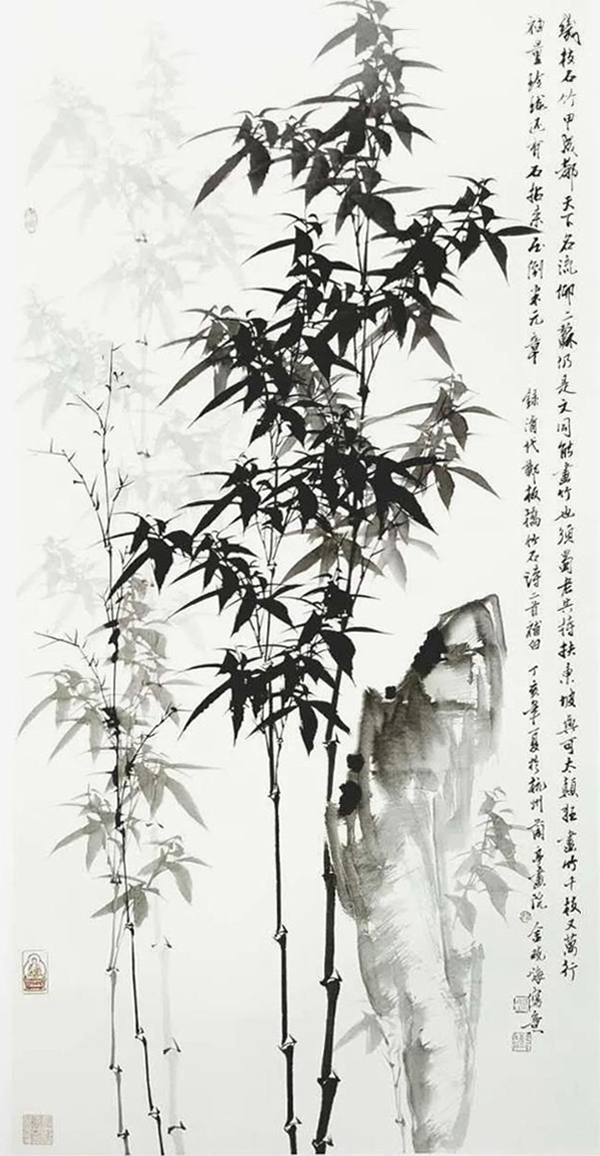 枝石竹甲成都天下名流仰二蘇仍是文同能畫竹也須蜀老共持扶東坡與可太顛狂畫竹千枝又萬行
袖里玲瓏還有石拈來压倒米元章 錄清代鄭板橋竹石詩二首補白 丁亥年夏於杭州蘭亭畫院 金曉海寫意